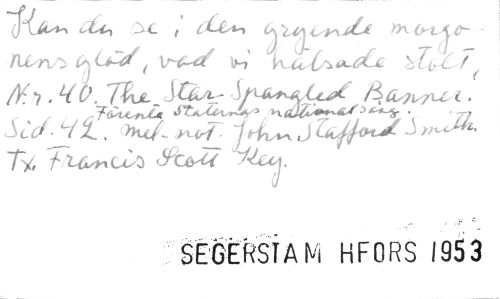 Kan du se i den gryende morgo-
nens glöd, vad vi hälsade stolt,
N:r. 40. The Star-Spangled Banner.
Förenta Staternas nationalsång.
Sid. 42. mel.-not. John Stafford Smith.
Tx. Francis Scott Key.
SEGERSTAM HFORS 1953